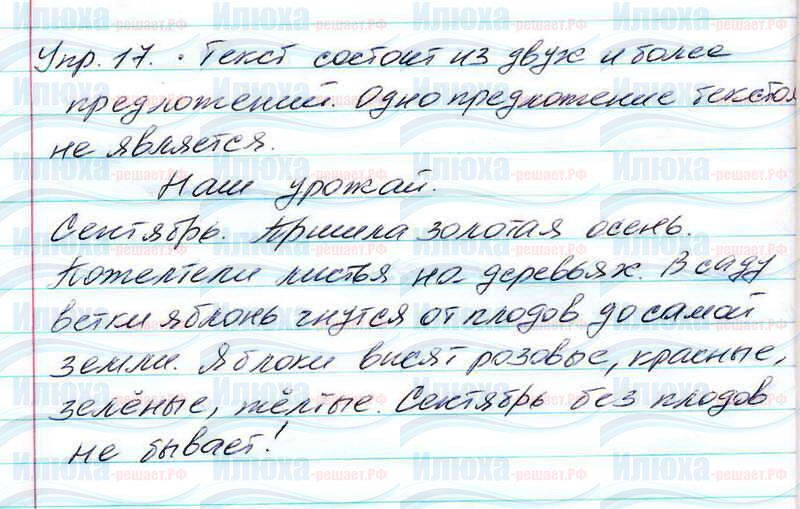 Упр. 17. Текст состоит из двух и более
предложений. Одно предложение текстом
не является.
Наш урожай.
Сентябрь. Пришла золотая осень.
Пожелтели листья на деревьях. В саду
ветки яблонь гнутся от плодов до самой
земли. Яблоки висят розовые, красные,
зелёные, жёлтые. Сентябрь без плодов
не бывает!